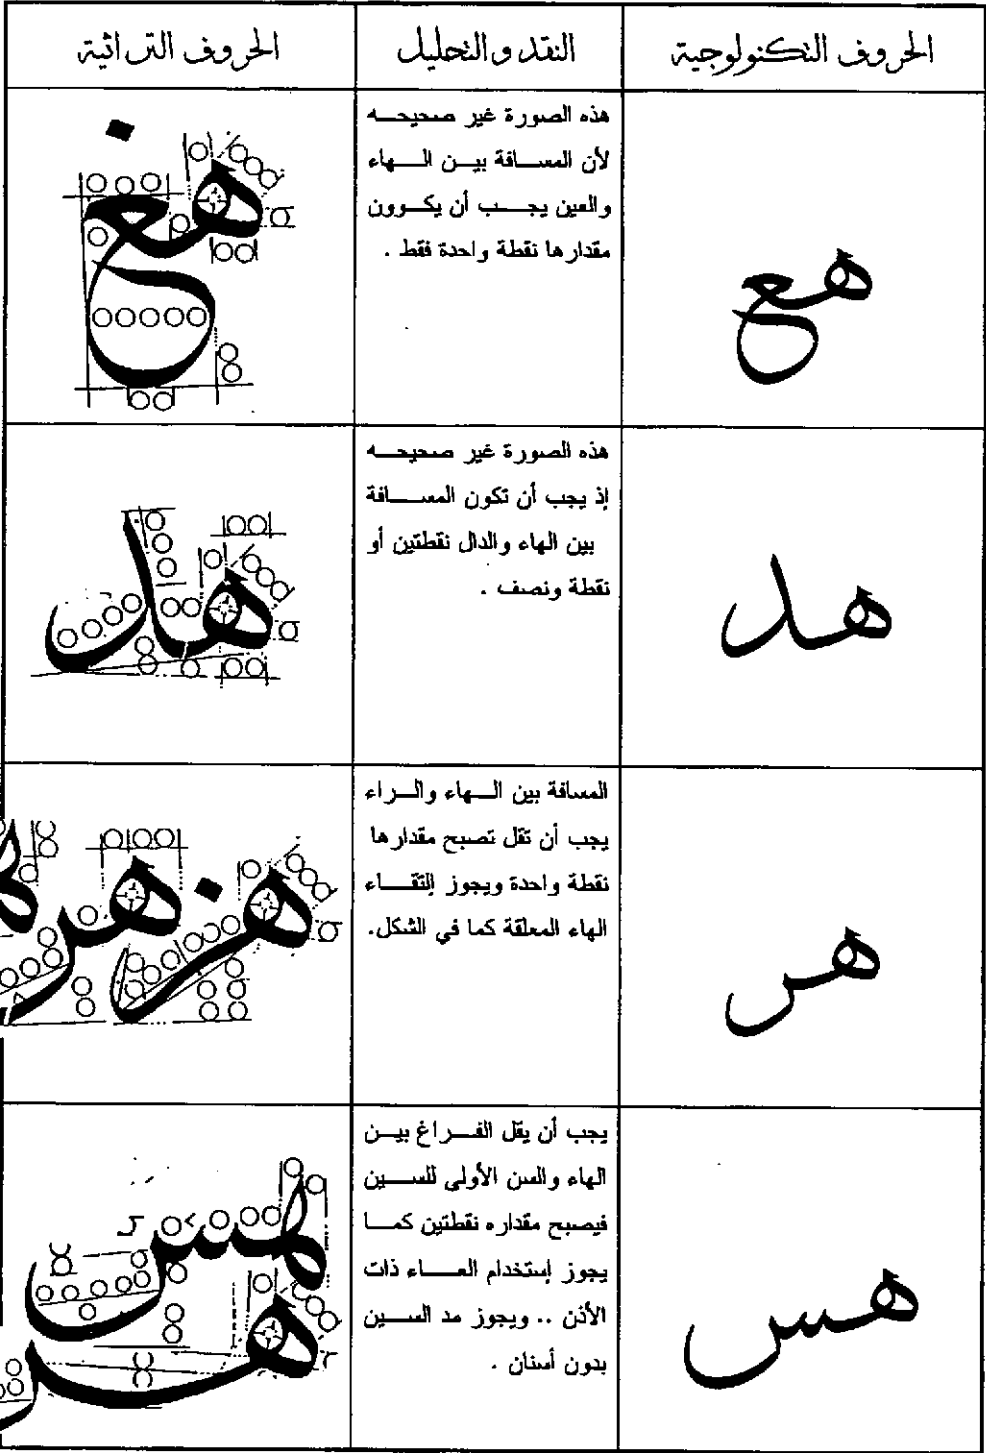 الحروف التكنولوجية
النقد والتحليل
الحروف التراثية
هع
هذه الصورة غير صحيحه
لأن المسافة بين الهاء
والعين يجب أن يكوون
مقدارها نقطة واحدة فقط .
هغ
هد
هذه الصورة غير صحيحه
إذ يجب أن تكون المسافة
بين الهاء والدال نقطتين أو
نقطة ونصف .
هد
هر
المسافة بين الهاء والراء
يجب أن تقل تصبح مقدارها
نقطة واحدة ويجوز إلتقاء
الهاء المعلقة كما في الشكل.
هز هر
هس
يجب أن يقل الفراغ بين
الهاء والسن الأولى للسين
فيصبح مقداره نقطتين كما
يجوز إستخدام العاء ذات
الأذن .. ويجوز مد السين
بدون أسنان .
هس
هس